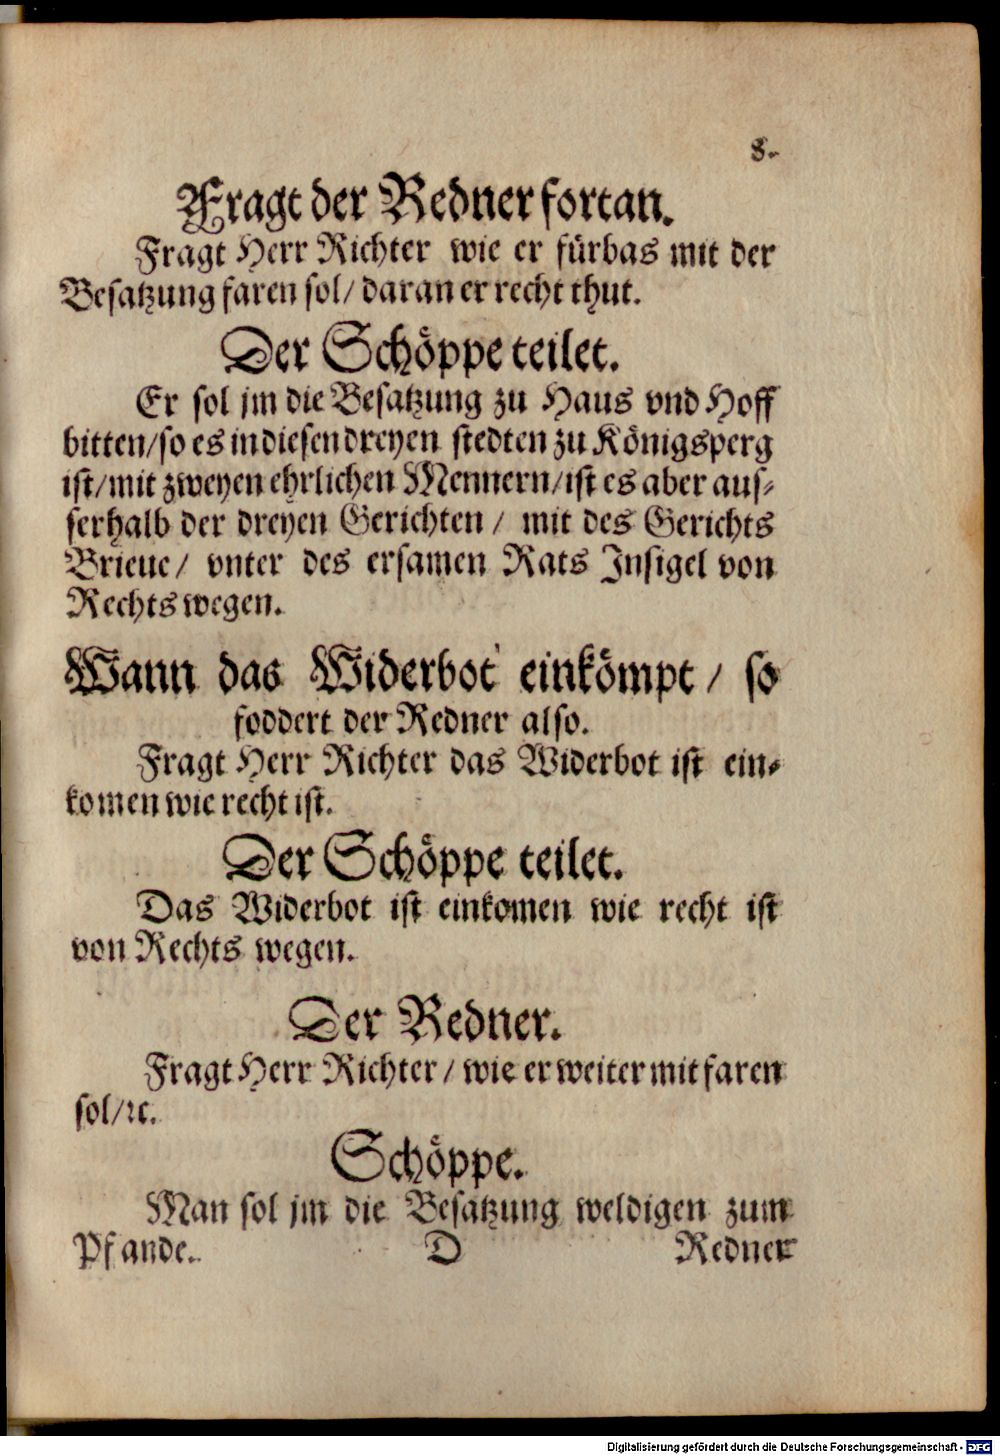 8.
Fragt der Redner fortan.
Fragt Herr Richter wie er fürbas mit der
Besatzung faren sol/ daran er recht thut.
Der Schöppe teilet.
Er sol jm die Besatzung zu Haus vnd Hoff
bitten/so es in diesen dreyen stedten zu Königsperg
ist/mit zweyen ehrlichen Mennern/ist es aber aus-
serhalb der dreyen Gerichten/ mit des Gerichts
Brieue/ vnter des ersamen Rats Insigel von
Rechts wegen.
Wann das Widerbot einkömpt/ so
foddert der Redner also.
Fragt Herr Richter das Widerbot ist ein-
komen wie recht ist.
Der Schöppe teilet.
Das Widerbot ist einkomen wie recht ist
von Rechts wegen.
Der Redner.
Fragt Herr Richter/ wie er weiter mit faren
sol/ꝛc.
Schöppe.
Man sol jm die Besatzung weldigen zum
Pfande. D Redner
Digitalisierung gefördert durch die Deutsche Forschungsgemeinschaft - DFG